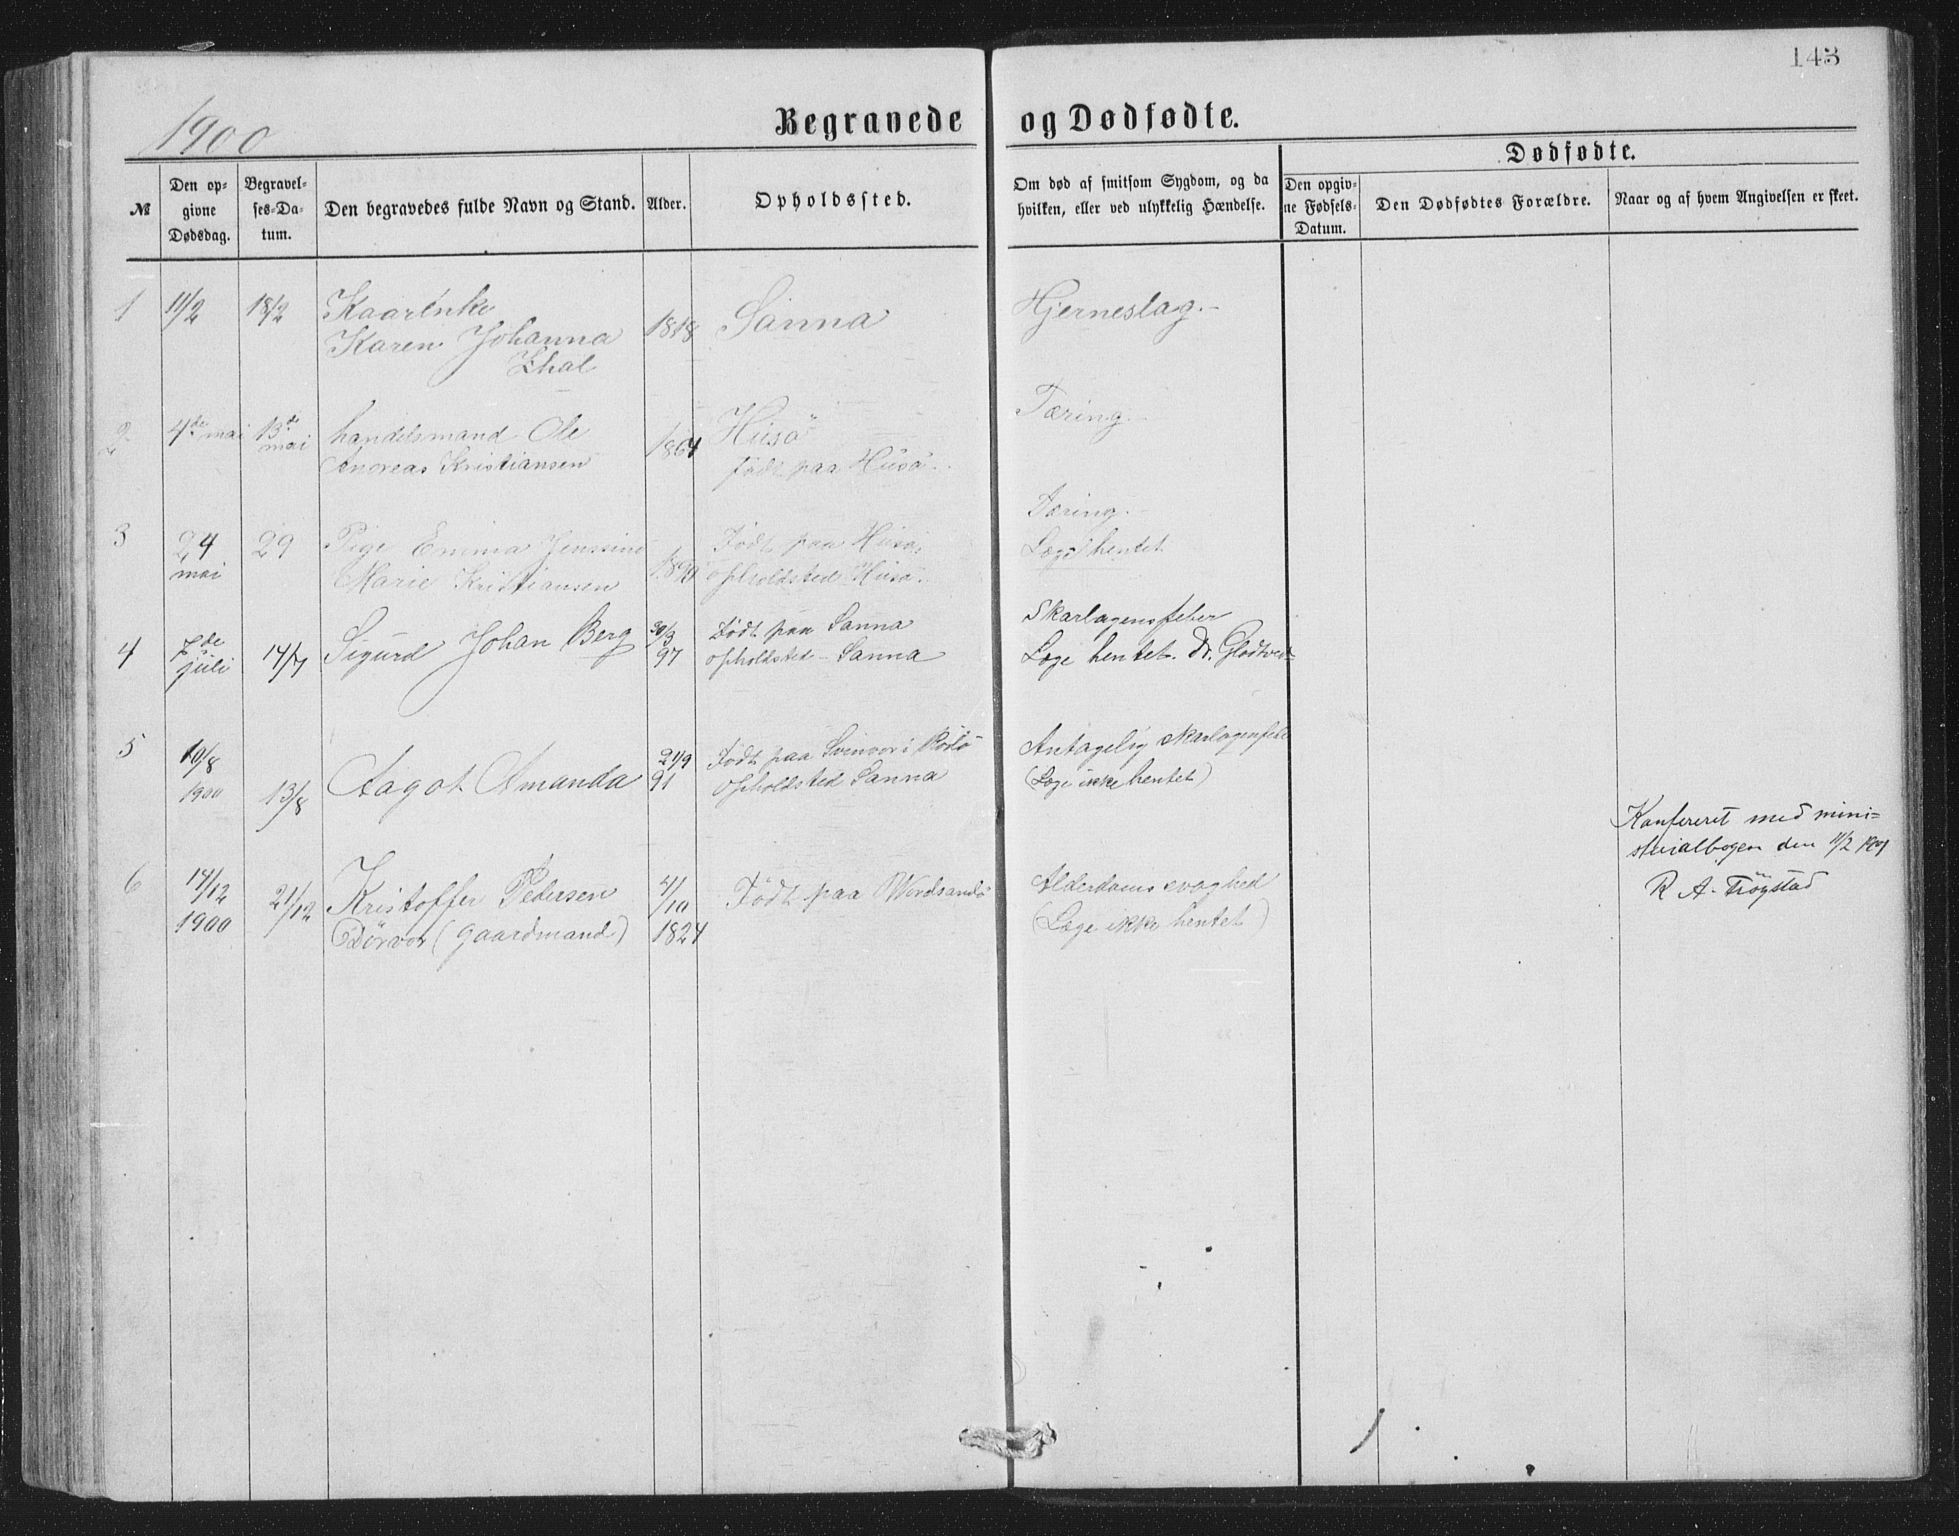 143
1900
Begravede og Dødfødte.
Dødfødte.
№
Den op-
givne
Dødsdag.
Begravel-
ses-Da-
tum.
Den begravedes fulde Navn og Stand.
Alder.
Opholdssted.
Om død af smitsom Sygdom, og da
hvilken, eller ved ulykkelig Hændelse.
Den opgiv-
ne Fødsels-
Datum.
Den Dødfødtes Forældre.
Naar og af hvem Angivelsen er skeet.
1
11/2
18/2
Kaarenke
Karen Johanna
1818
Sanna
Hjerneslag.-
2
4de mai
13de
mai
handelsmand Ole
Andreas Kristiansen
1864
Husö
født paa Husö.
Tæring.-
3
24
mai
29
Pige Emma Jenssine
Marie Kristiansen
Født paa Husö,
opholdsted Husö.
Tæring.-
Læge hentet
4
7de
juli
14/7
Sigurd Johan Berg
30/3
97
Født paa Sanna
opholdsted - Sanna
Skarlagensfeber
Læge hentet. Dr. Glødtvedt
5
10/8
1900
13/8
Aagot Amanda
21/9
91
Født paa Svinvær i Rödö
opholdsted Sanna
Antagelig skarlagenfeb
(Læge ikke hentet)
6
14/12
1900
21/12
Kristoffer Pedersen
(gaardmand)
4/10
1824
Født paa
Alderdoms svaghed
(Læge ikke hentet)
Konfereret med mini-
sterialbogen den 11/2 1901
R A. Trögstad